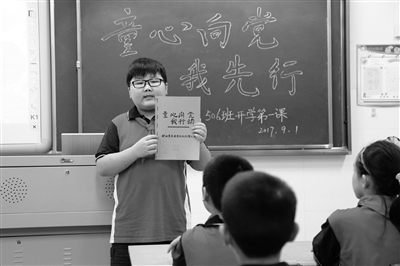 童心向党
我先行
506班开学第一课
2017.9.1
童心向党
我行动